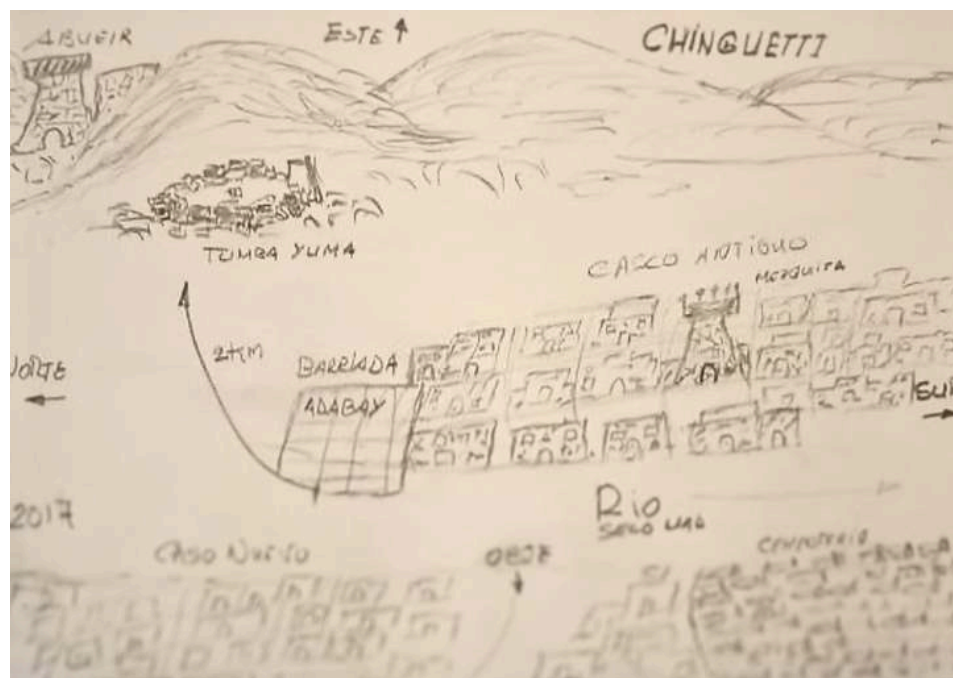 ABUEIR
ESTE
CHINGUETTI
TUMBA YUMA
CASCO ANTIGUO
MEZQUITA
2 Km
NORTE
BARRIADA
ADABAY
SUR
2017
Rio
SECO UAD
CASO NUEVO
OESTE
CEMENTERIO